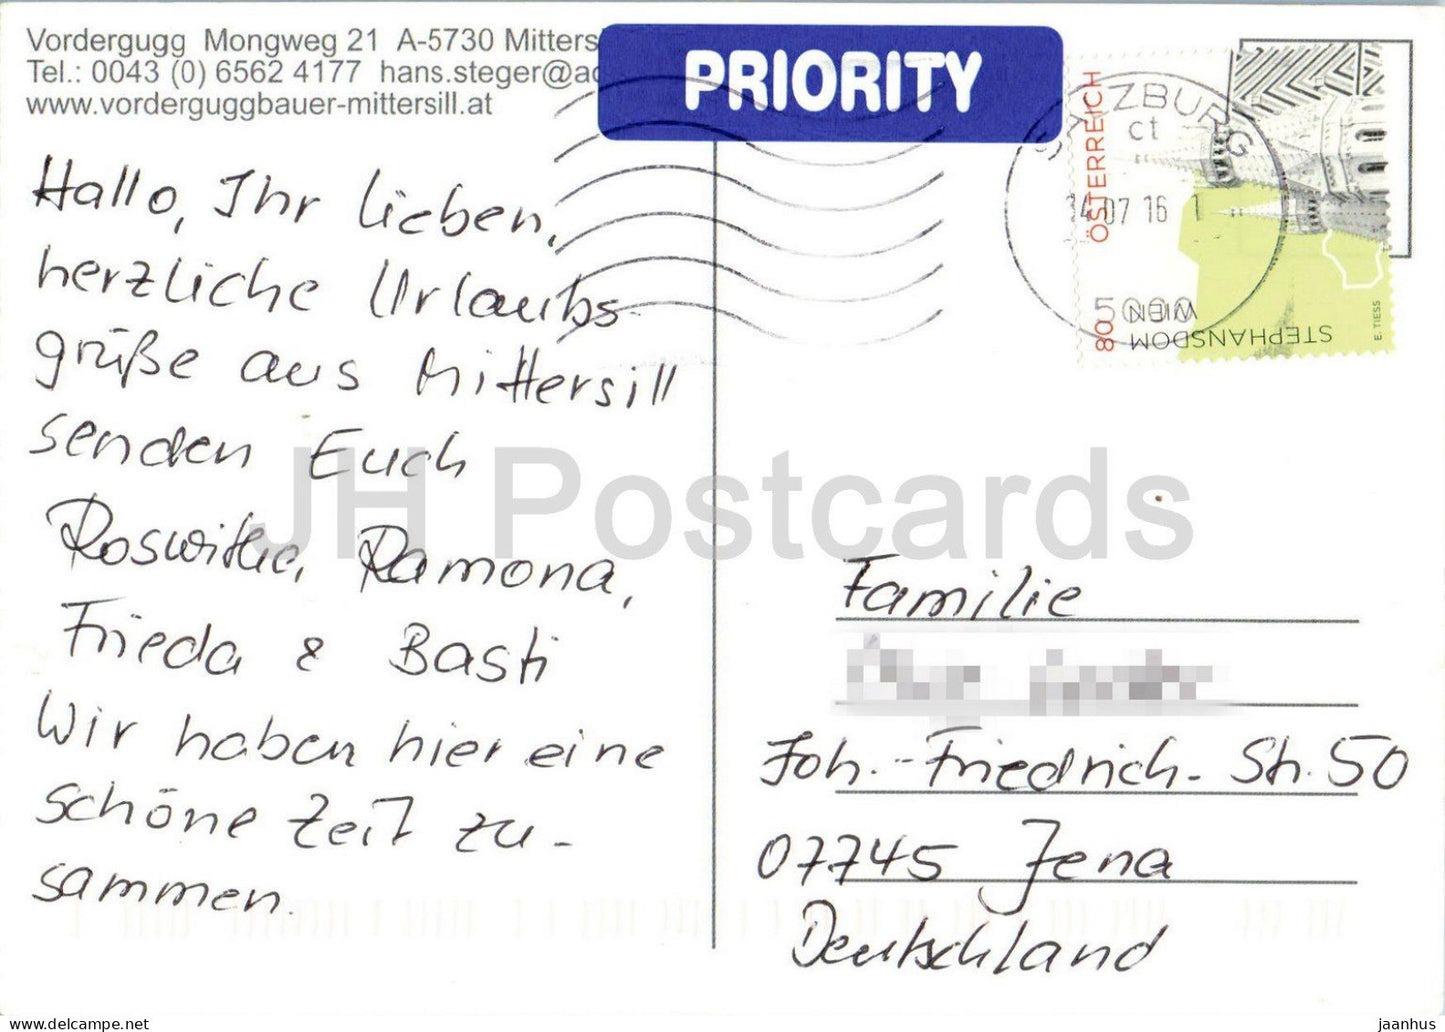 Vordergugg Mongweg 21 A-5730 Mitters
Tel.: 0043 (0) 6562 4177 hans.steger@a
www.vorderguggbauer-mittersill.at
PRIORITY
SALZBURG
ct
14.07 16 1
5000
ÖSTERREICH
80
WIEN
STEPHANSDOM
E. TIESS
Hallo, Ihr lieben,
herzliche Urlaubs-
grüße aus Mittersill
senden Euch
Roswitha, Ramona,
Frieda & Basti
Wir haben hier eine
schöne Zeit zu-
sammen.
JH Postcards
Familie
Joh.-Friedrich-Str. 50
07745 Jena
Deutschland
jaanhus
www.delcampe.net